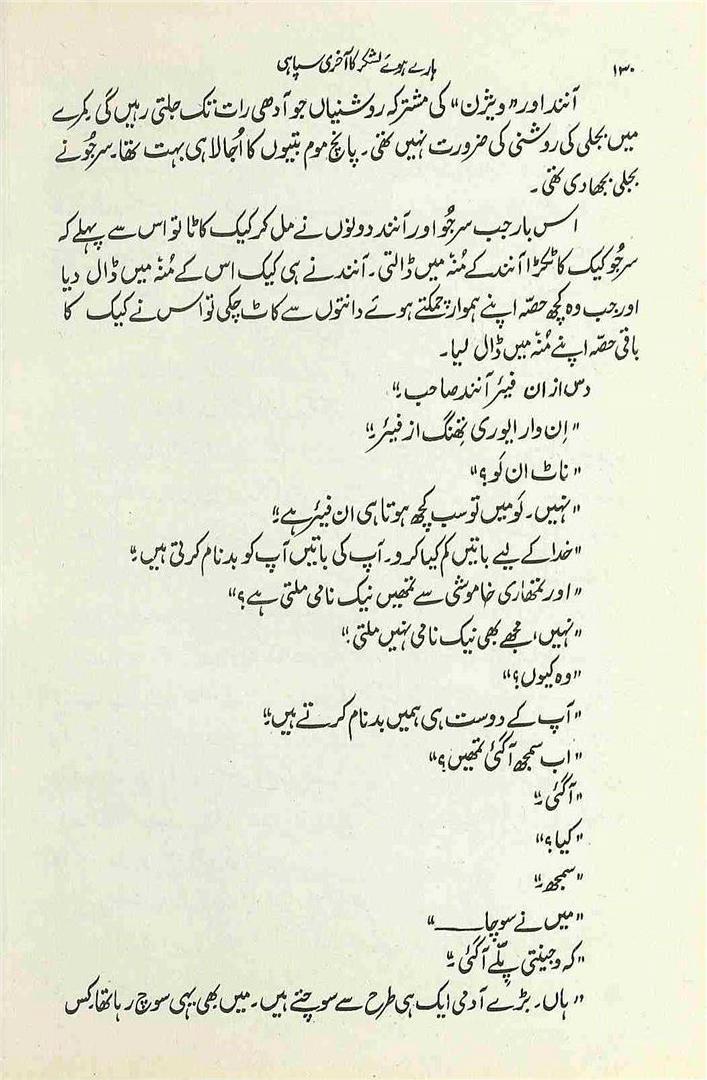 ۱۳۰
ہارے ہوئے لشکر کا آخری سپاہی
آنند اور ”ویژن“ کی مشترکہ روشنیاں جو آدھی رات تک جلتی رہیں گی۔ کمرے
میں بجلی کی روشنی کی ضرورت نہیں تھی۔ پانچ موم بتیوں کا اُجالا ہی بہت تھا۔ سرجُو نے
بجلی بجھا دی تھی۔
اس بار جب سرجُو اور آنند دونوں نے مل کر کیک کاٹا تو اس سے پہلے کہ
سرجُو کیک کا ٹکڑا آنند کے مُنہ میں ڈالتی۔ آنند نے ہی کیک اس کے مُنہ میں ڈال دیا
اور جب وہ کچھ حصّہ اپنے ہموار چمکتے ہوئے دانتوں سے کاٹ چکی تو اس نے کیک کا
باقی حصّہ اپنے مُنہ میں ڈال لیا۔
دس از ان فیئر آنند صاحب۔“
”اِن وار ایوری تِھنگ از فیئر۔“
”ناٹ ان لَو؟“
”نہیں۔ لَو میں تو سب کچھ ہوتا ہی ان فیئر ہے۔“
”خدا کے لیے باتیں کم کیا کرو۔ آپ کی باتیں آپ کو بدنام کرتی ہیں۔“
”اور تمھاری خاموشی سے تمھیں نیک نامی ملتی ہے؟“
”نہیں، مجھے بھی نیک نامی نہیں ملتی۔“
”وہ کیوں؟“
”آپ کے دوست ہی ہمیں بدنام کرتے ہیں۔“
”اب سمجھ آگئی تمھیں؟“
”آگئی۔“
”کیا؟“
”سمجھ۔“
”میں نے سوچا ــــــــ“
”کہ وجینتی پِلّے آگئی۔“
”ہاں۔ بڑے آدمی ایک ہی طرح سے سوچتے ہیں۔ میں بھی یہی سوچ رہا تھا۔ کِس